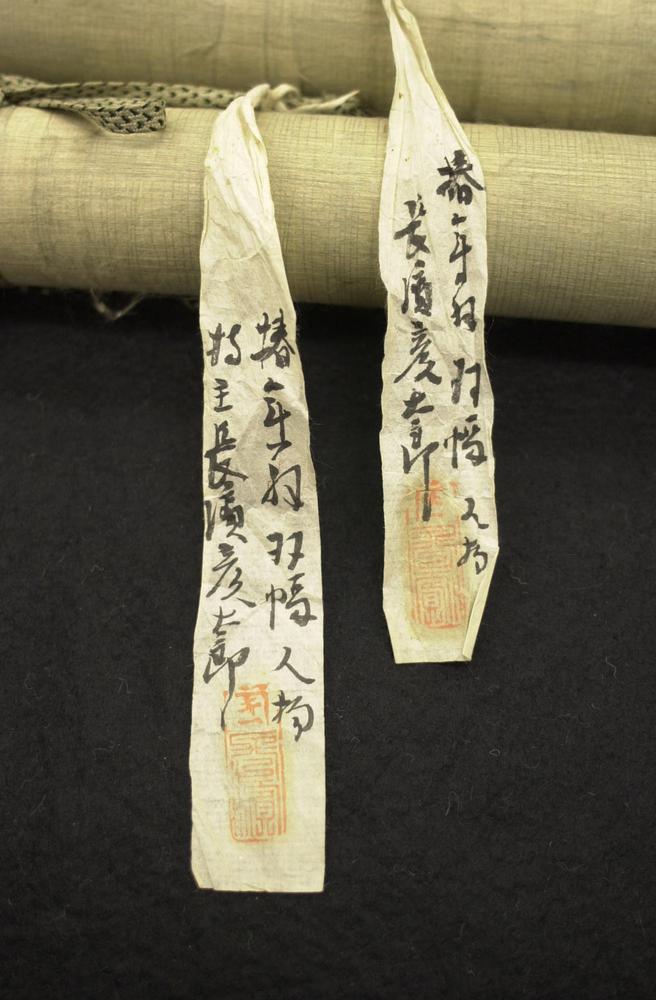 椿年羽 双幅 人物
長濱彦太郎
椿年羽 双幅 人物
持主長濱彦太郎